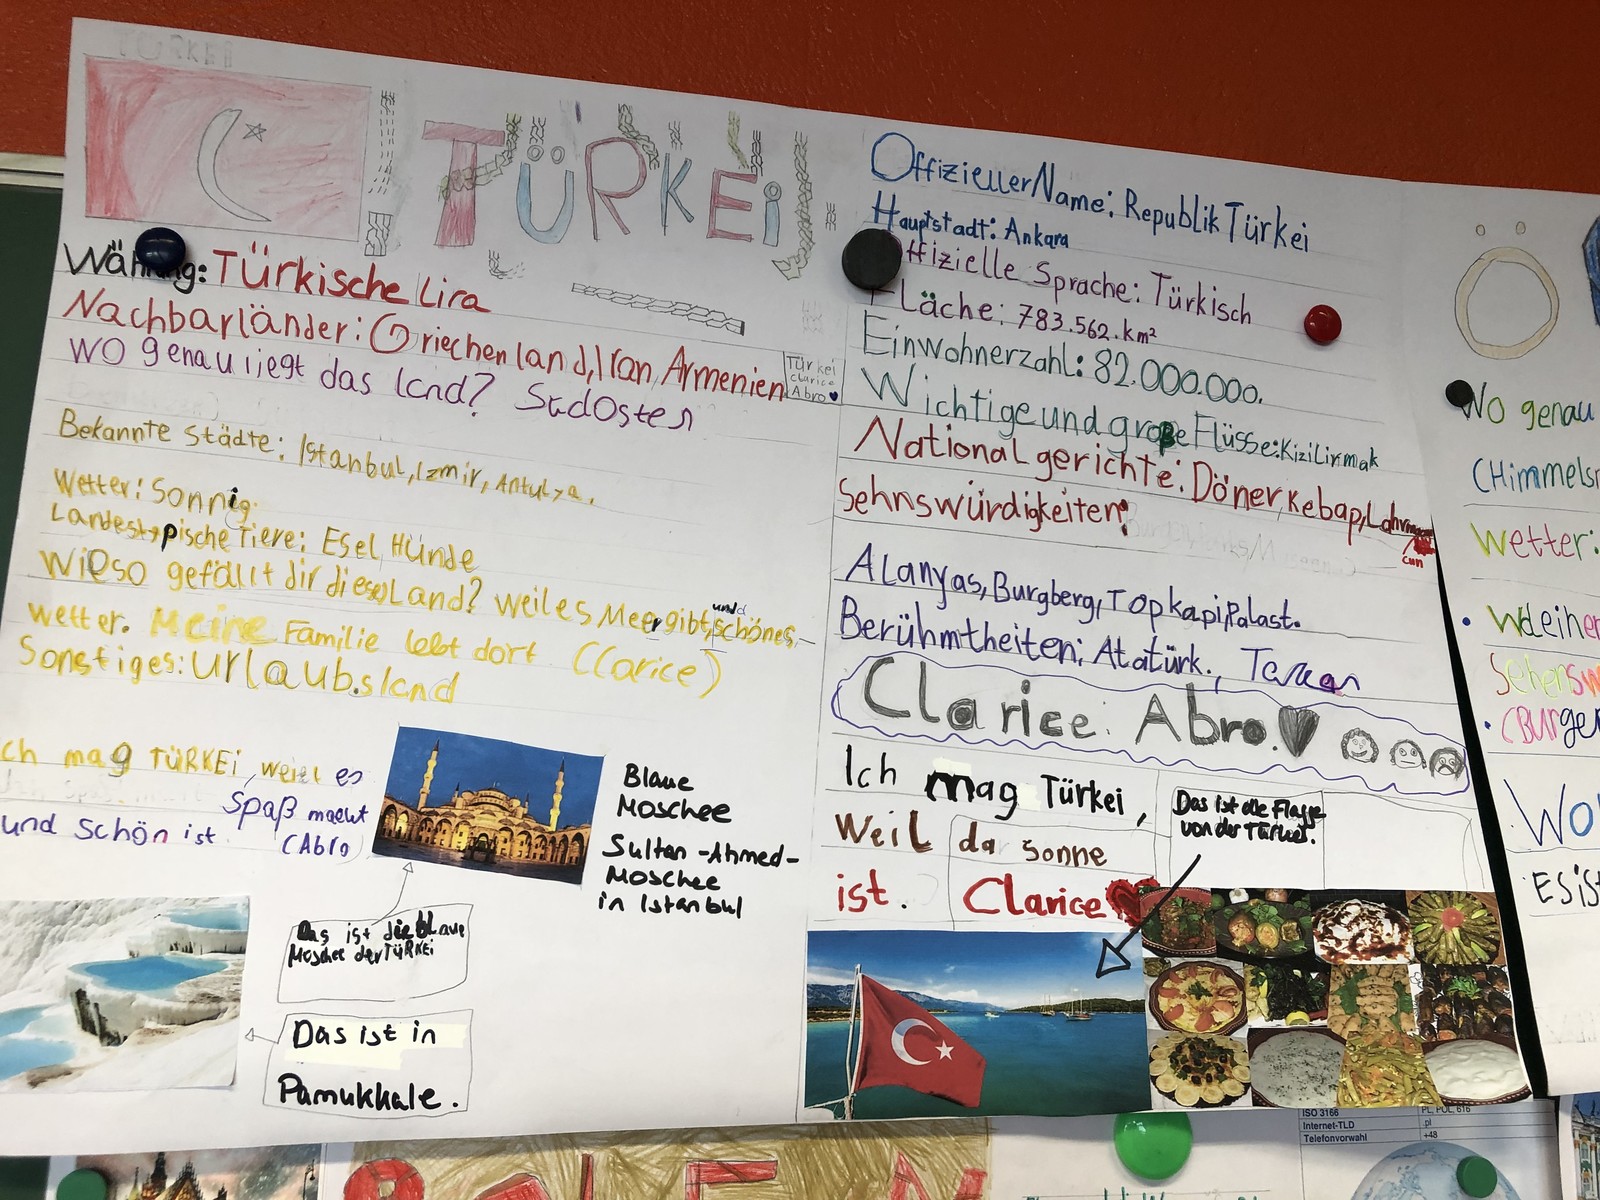 TÜRKEI
TÜRKEi
Währung: Türkische lira
Nachbarländer: Griechenland, Iran, Armenien
Türkei
Clarice
Abro
Wo genau liegt das land? Südosten
Bekannte Städte: Istanbul, Izmir, Antulya.
Wetter: Sonnig.
Landestypische Tiere: Esel, Hünde
Wieso gefällt dir dieses Land? weil es Meer gibt, und schönes
wetter. Meine Familie lebt dort (Clarice)
Sonstiges: Urlaubsland
ch mag TÜRKEi, weil es
Spaß macht
und schön ist. (Abro)
Blaue
Moschee
Sultan-Ahmed-
Moschee
in Istanbul
Das ist die blaue
Moschee der TÜRKEi
Das ist in
Pamukkale.
Offizieller Name: Republik Türkei
Hauptstadt: Ankara
ffizielle Sprache: Türkisch
Fläche: 783.562.km²
Einwohnerzahl: 82.000.000.
Wichtige und große Flüsse: Kizilirmak
Nationalgerichte: Döner, Kebap, Lahmacun
Sehnswürdigkeiten:
Alanyas, Burgberg, Topkapi, Palast.
Berühmtheiten: Atatürk., Tarkan
Clarice. Abro.
Ich mag Türkei,
weil da sonne
ist. Clarice
Das ist die Flagge
von der Türkei.
Ö
Wo genau
(Himmels
Wetter:
Sehensw
(Burge
Wo
Es ist
ISO 3166 PL, POL, 616
Internet-TLD .pl
Telefonvorwahl +48